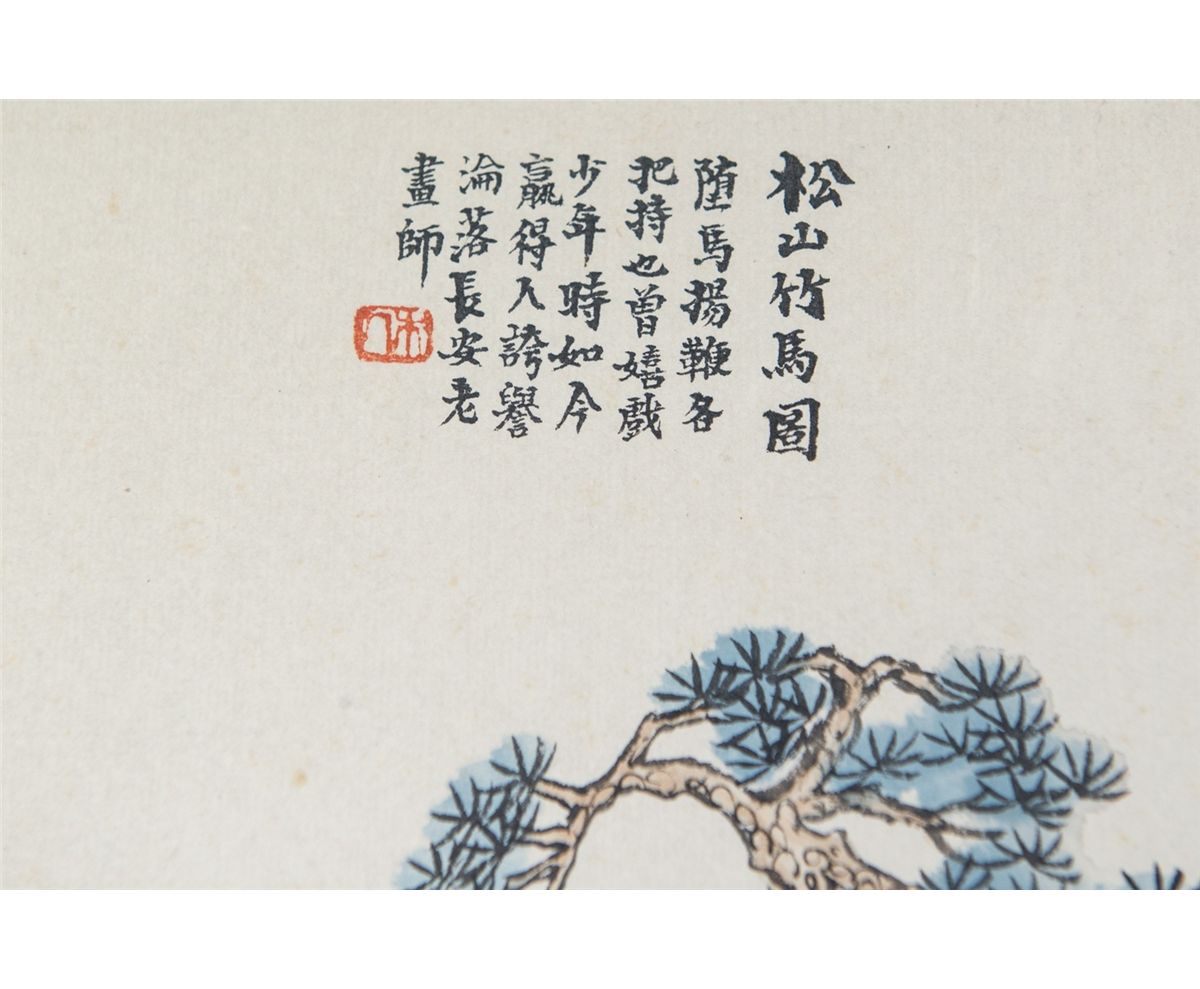 松山竹馬圖
堕馬揚鞭各
把持也曾嬉戲
少年時如今
贏得入誇譽
淪落長安老
畫師